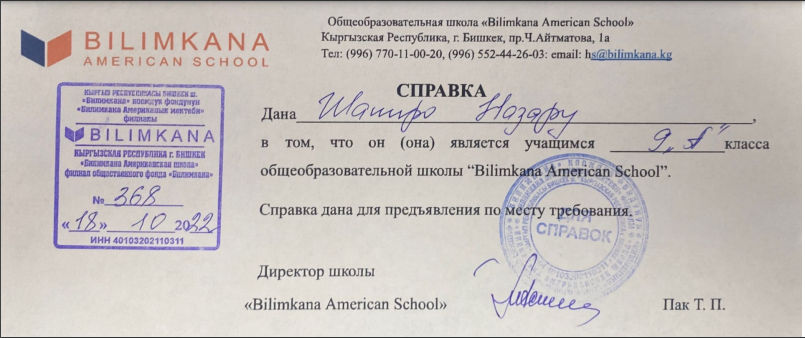 BILIMKANA
AMERICAN SCHOOL
Общеобразовательная школа «Bilimkana American School»
Кыргызская Республика, г. Бишкек, пр.Ч.Айтматова, 1а
Тел: (996) 770-11-00-20, (996) 552-44-26-03: email: hs@bilimkana.kg
КЫРГЫЗ РЕСПУБЛИКАСЫ БИШКЕК ш.
«Билимкана» коомдук фондунун
«Билимкана Американ мектеби»
филиалы
BILIMKANA
КЫРГЫЗСКАЯ РЕСПУБЛИКА г. БИШКЕК
«Билимкана Американская школа»
филиал общественного фонда «Билимкана»
№ 368
«18» 10 2022
ИНН 40103202110311
СПРАВКА
Дана Шапиро Назару,
в том, что он (она) является учащимся 9 „А" класса
общеобразовательной школы “Bilimkana American School”.
Справка дана для предъявления по месту требования.
ДЛЯ
СПРАВОК
Директор школы
«Bilimkana American School» Пак Т. П.